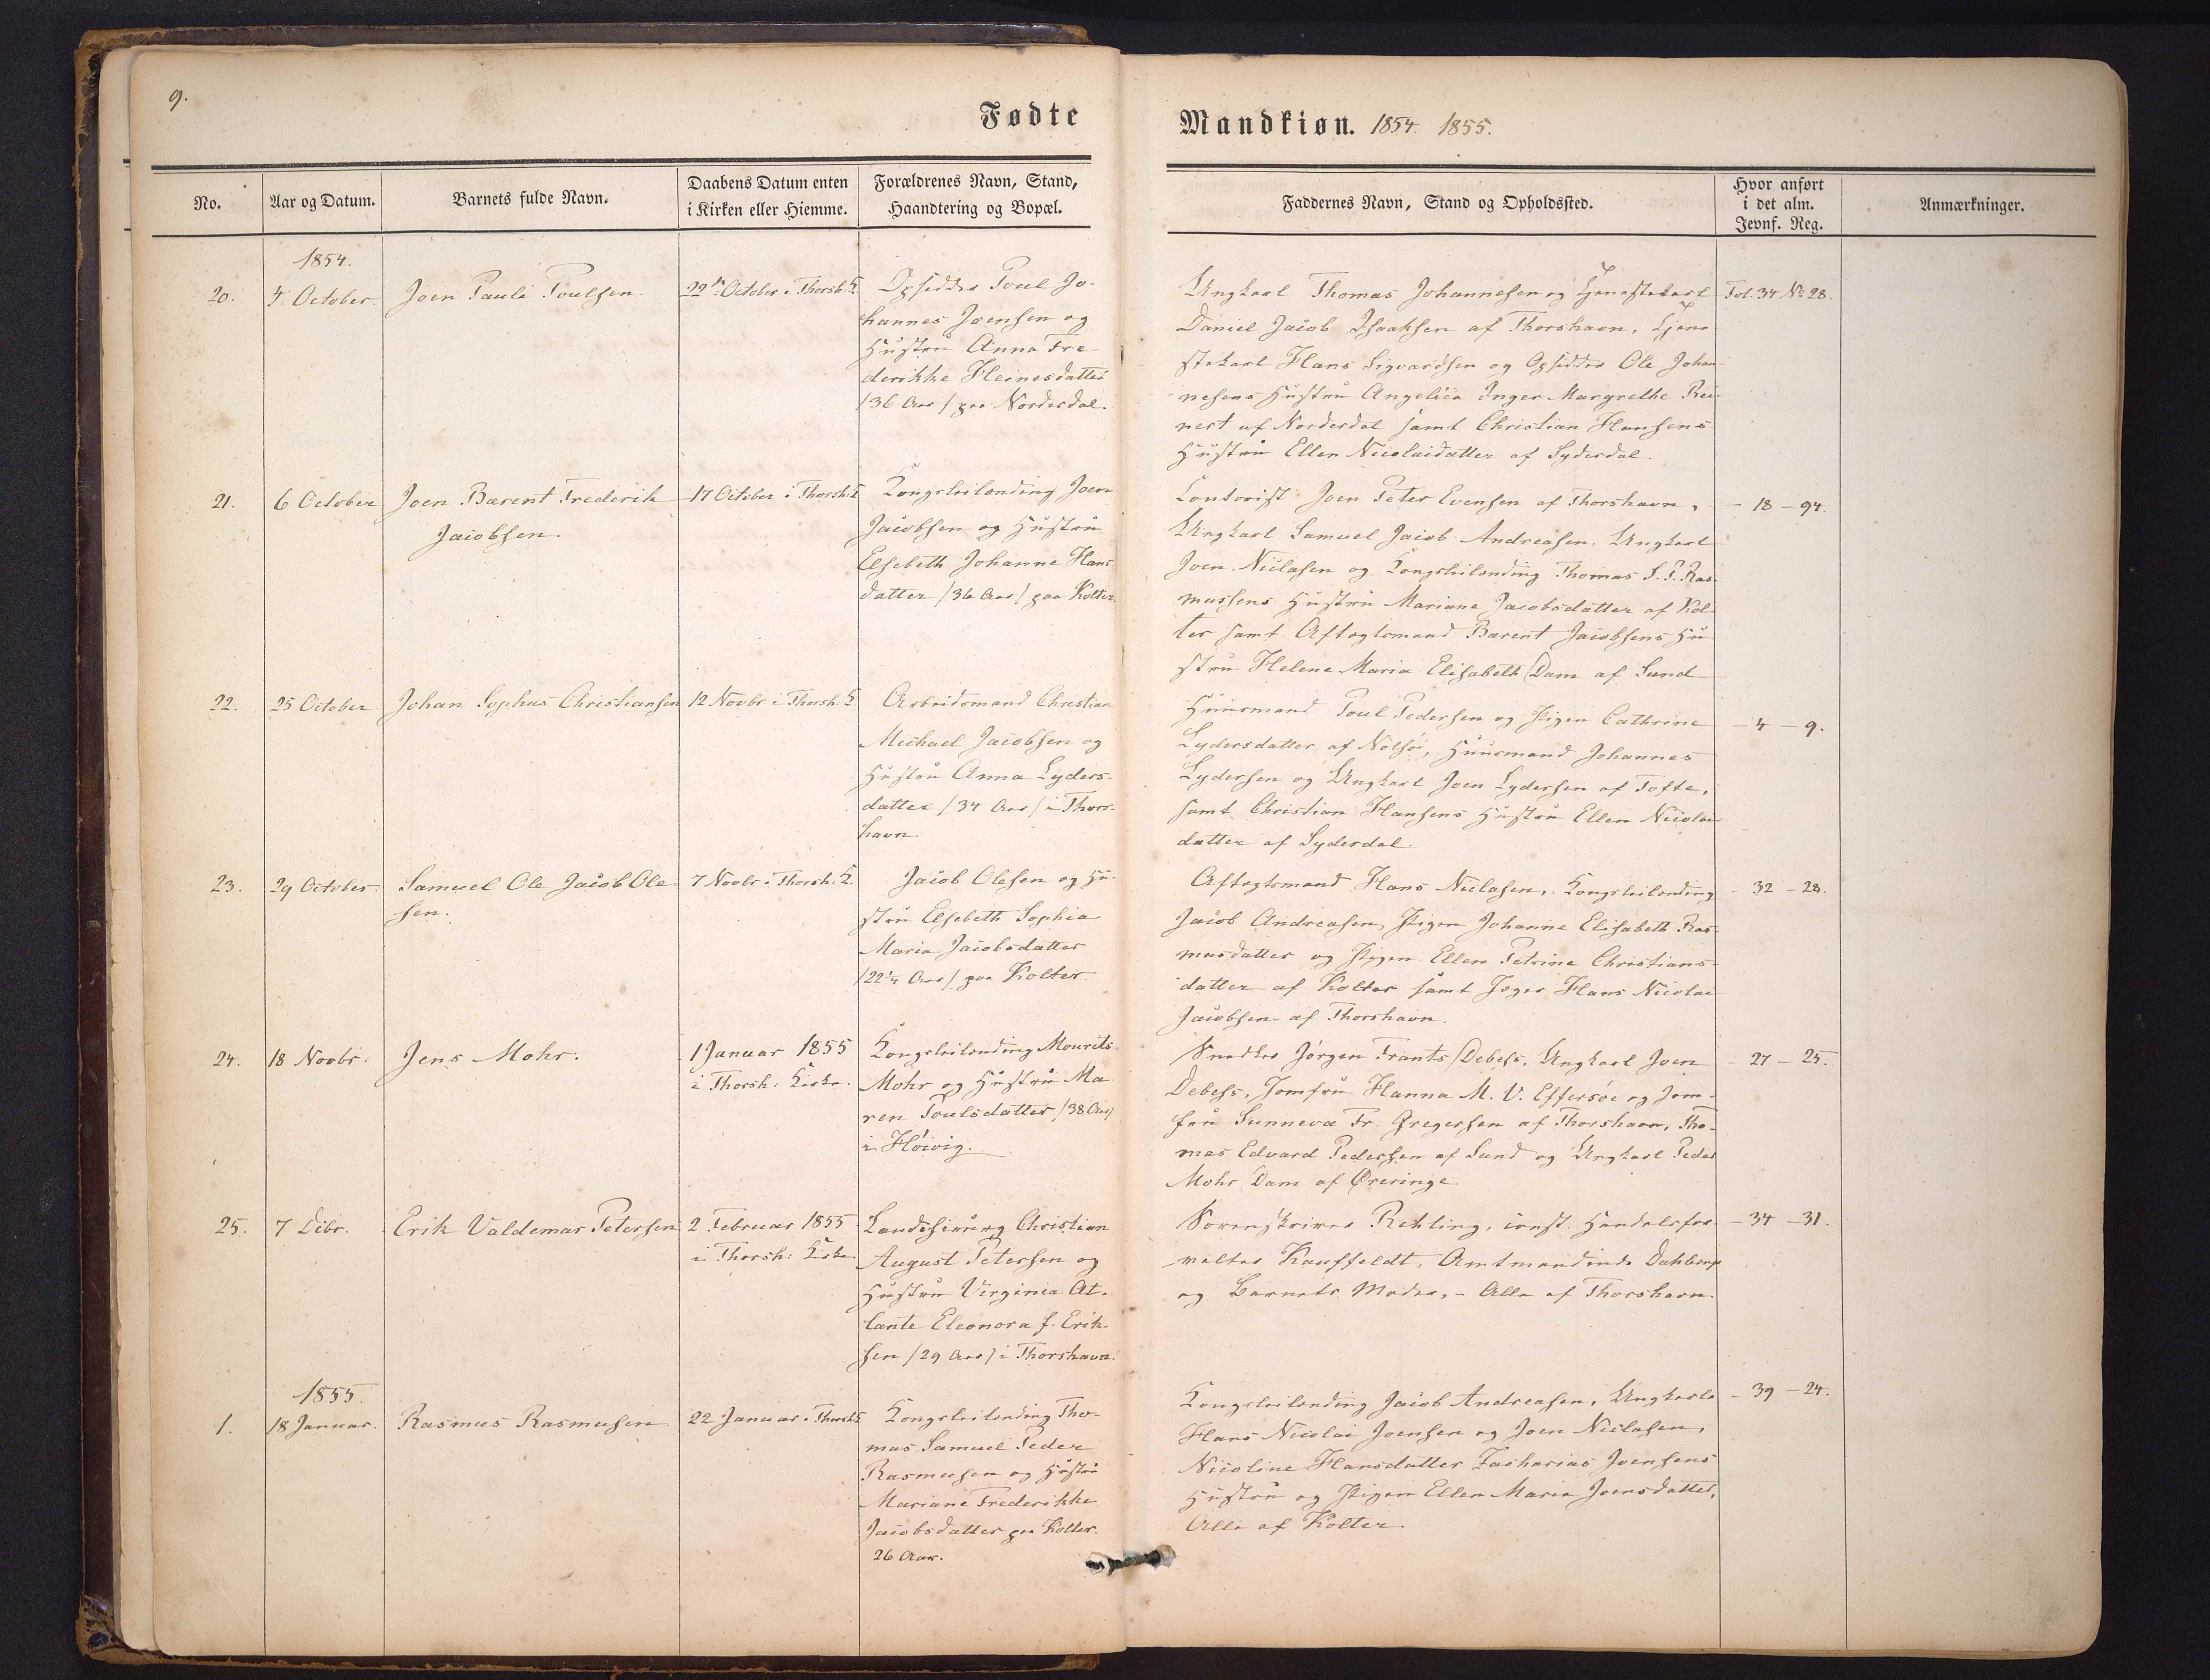 9.
Fødte
Mandkiøn. 1854. 1855.
No.
Aar og Datum.
Barnets fulde Navn.
Daabens Datum enten
i Kirken eller Hiemme.
Forældrenes Navn, Stand,
Haandtering og Bopæl.
Faddernes Navn, Stand og Opholdssted.
Hvor anført
i det alm.
Jevnf. Reg.
Anmærkninger.
1854.
20.
4. October.
Joen Pauli Poulsen.
22de October i Thorsh: K
Opsidder Poul Jo-
hannes Joensen og
Hustru Anna Fre
derikke Heinesdatter
/36 Aar/ paa Nordredal.
Ungkarl Thomas Johannesen og Tjenestekarl
Daniel Jacob Isaaksen af Thorshavn, Tjene
stekarl Hans Sigvardsen og Opsidder Ole Johan-
nesens Hustru Angelica Inger Margrethe Rei-
nert af Nordredal samt Christian Hansens
Hustru Ellen Nicolaidatter af Syderdal.
Fol. 34 No 28.
21.
6 October
Joen Barent Frederik
Jacobsen.
17 October i Thorsh: K
Kongsleilending Joen
Jacobsen og Hustru
Elsebeth Johanne Hans
datter /36 Aar/ paa Kolter.
Contorist Joen Peter Evensen af Thorshavn,
Ungkarl Samuel Jacob Andreasen, Ungkarl
Joen Niclasen og Kongsleilending Thomas S. P. Ras-
mussens Hustru Mariane Jacobsdatter af Kol
ter samt Aftægtsmand Barent Jacobsens Hu
stru Helene Maria Elisabeth Dam af Sund
- 18 - 94.
22.
25 October
Johan Sophus Christiansen
12 Novbr i Thorsh: K
Arbeidsmand Christian
Michael Jacobsen og
Hustru Anna Lyders-
datter /34 Aar/ i Thors-
havn.
Huusmand Poul Pedersen og Pigen Cathrine
Lydersdatter af Nolsöe, Huusmand Johannes
Lydersen og Ungkarl Joen Lydersen af Tofte,
samt Christian Hansens Hustru Ellen Nicolai
datter af Syderdal.
- 4 - 9.
23.
29 October
Samuel Ole Jacob Ole-
sen.
7 Novbr i Thorsh: K.
Jacob Olesen og Hu-
stru Elsebeth Sophia
Maria Jacobsdatter
/22¼ Aar/ paa Kolter
Aftægtsmand Hans Niclasen, Kongsleilending
Jacob Andreasen, Pigen Johanne Elisabeth Ras-
musdatter og Pigen Ellen Petrine Christians-
datter af Kolter samt Jæger Hans Nicolai
Jacobsen af Thorshavn.
- 32 - 28.
24.
18 Novbr.
Jens Mohr.
1 Januar 1855
i Thorsh: Kirke.
Kongsleilending Mourits
Mohr og Hustru Ma-
ren Poulsdatter /38 Aar/
i Höivig.
Snedker Jörgen Frants Debess, Ungkarl Joen
Debess, Jomfru Hanna M. V. Effersöe og Jom-
fru Sunneva Fr. Gregersen af Thorshavn, Tho-
mas Edvard Pedersen af Sund og Ungkarl Peder
Mohr Dam af Øreringe
- 27 - 25.
25.
7 Decbr.
Erik Valdemar Petersen
2 Februar 1855
i Thorsh: Kirke.
Landschirurg Christian
August Petersen og
Hustru Virginia At-
lante Eleonora f. Erik-
sen /29 Aar/ i Thorshavn.
Sorenskriver Rehling, const. Handelsfor-
valter Kauffeldt, Amtmandinde Dahlerup
og Barnets Moder, - Alle af Thorshavn.
- 34 - 31.
1855.
1.
18 Januar.
Rasmus Rasmusen
22 Januar i Thorsh: K
Kongsleilending Tho-
mas Samuel Peder
Rasmusen og Hustru
Mariane Frederikke
Jacobsdatter paa Kolter.
26 Aar.
Kongsleilending Jacob Andreasen, Ungkarle
Hans Nicolai Joensen og Joen Niclasen,
Nicoline Hansdatter Zacharias Joensens
Hustru og Pigen Ellen Maria Joensdatter,
Alle af Kolter.
- 39 - 24.